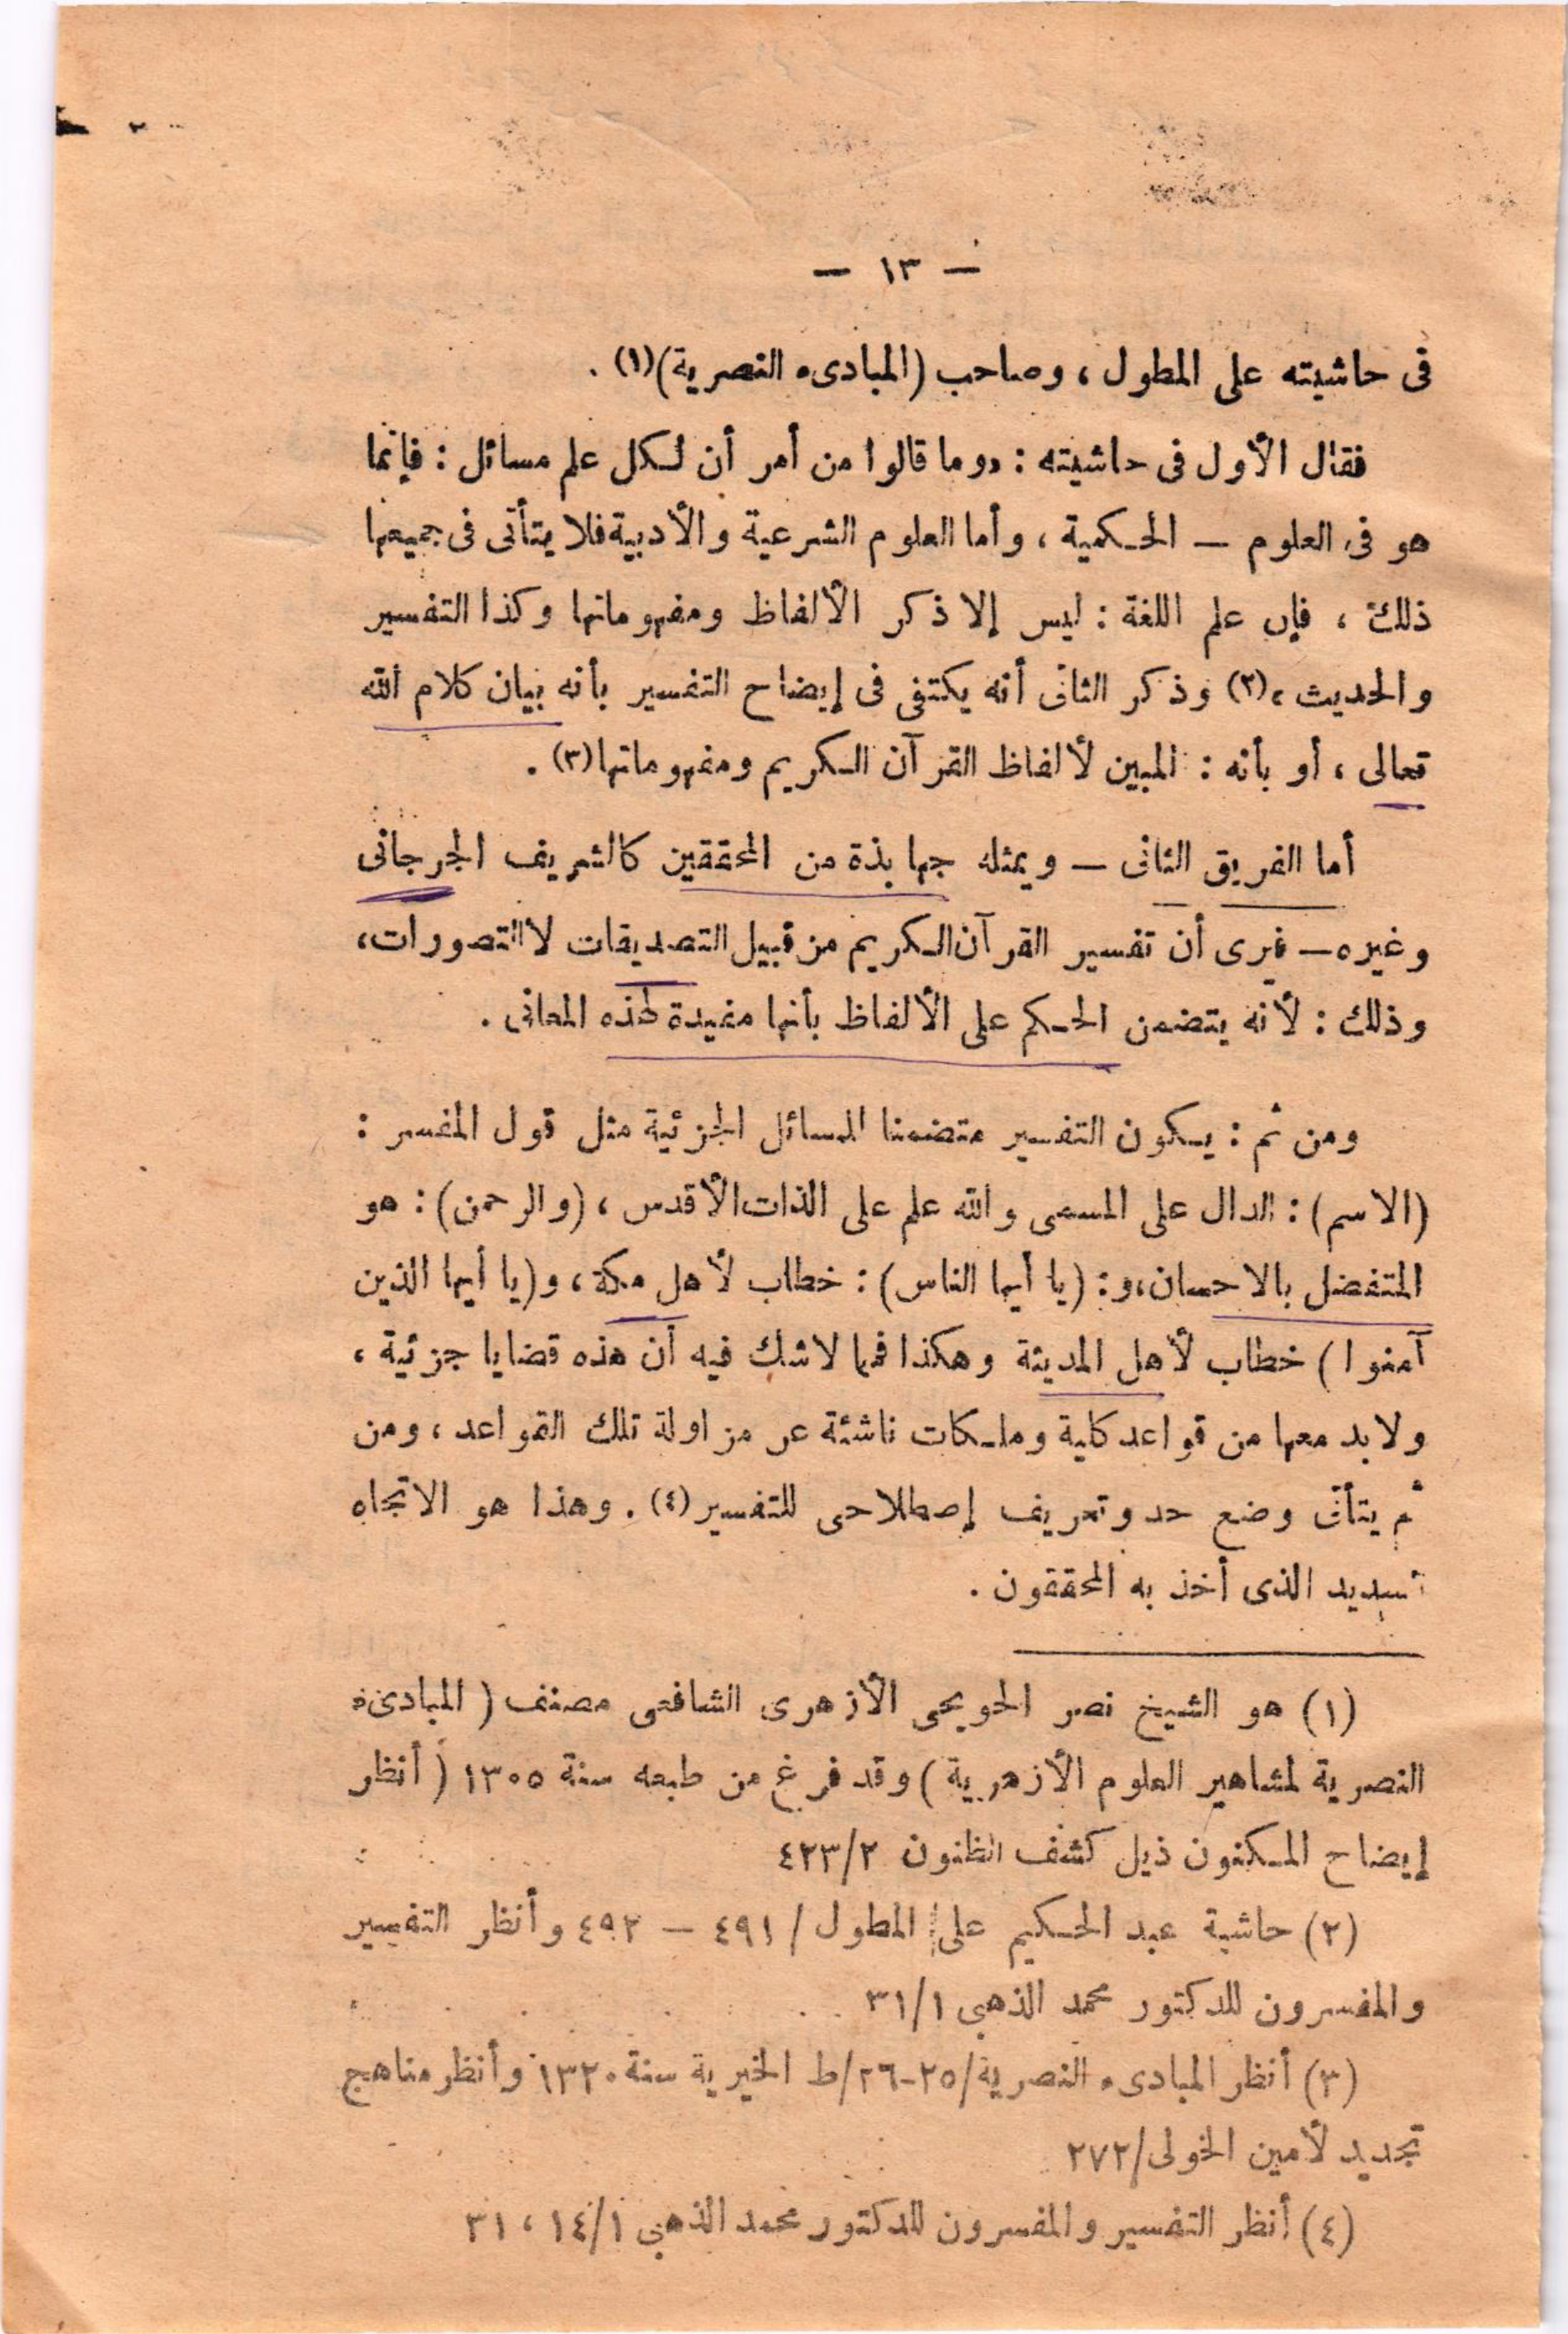 — ١٣ —
فى حاشيته على المطول ، وصاحب (المبادىء النصرية)(١) .
فقال الأول فى حاشيته : «وما قالوا من أمر أن لكل علم مسائل : فإنما
هو فى العلوم — الحكمية ، وأما العلوم الشرعية والأدبية فلا يتأتى فى جميعها
ذلك ، فإن علم اللغة : ليس إلا ذكر الألفاظ ومفهوماتها وكذا التفسير
والحديث ،(٢) وذكر الثانى أنه يكتفى فى إيضاح التفسير بأنه بيان كلام الله
تعالى ، أو بأنه : المبين لألفاظ القرآن الكريم ومفهوماتها(٣) .
أما الفريق الثانى — ويمثله جهابذة من المحققين كالشريف الجرجانى
وغيره — فيرى أن تفسير القرآن الكريم من قبيل التصديقات لا التصورات ،
وذلك : لأنه يتضمن الحكم على الألفاظ بأنها مفيدة لهذه المعانى .
ومن ثم : يكون التفسير متضمنا المسائل الجزئية مثل قول المفسر :
(الاسم) : الدال على المسمى والله علم على الذات الأقدس ، (والرحمن) : هو
المتفضل بالاحسان ، و : (يا أيها الناس) : خطاب لأهل مكة ، و(يا أيها الذين
آمنوا) خطاب لأهل المدينة وهكذا فمما لاشك فيه أن هذه قضايا جزئية ،
ولابد معها من قواعد كلية وملكات ناشئة عن مزاولة تلك القواعد ، ومن
ثم يتأتى وضع حد وتعريف إصطلاحى للتفسير(٤) . وهذا هو الاتجاه
السديد الذى أخذ به المحققون .
(١) هو الشيخ نصر الحويحى الأزهرى الشافعى مصنف (المبادىء
النصرية لمشاهير العلوم الأزهرية) وقد فرغ من طبعه سنة ١٣٠٥ (أنظر
إيضاح المكنون ذيل كشف الظنون ٤٢٣/٢
(٢) حاشية عبد الحكيم على المطول / ٤٩١ — ٤٩٢ وأنظر التفسير
والمفسرون للدكتور محمد الذهبى ٣١/١
(٣) أنظر المبادىء النصرية/٢٥-٢٦/ط الخيرية سنة ١٣٢٠ وأنظر مناهج
تجديد لأمين الخولى/٢٧٢
(٤) أنظر التفسير والمفسرون للدكتور محمد الذهبى ١٤/١ ، ٣١